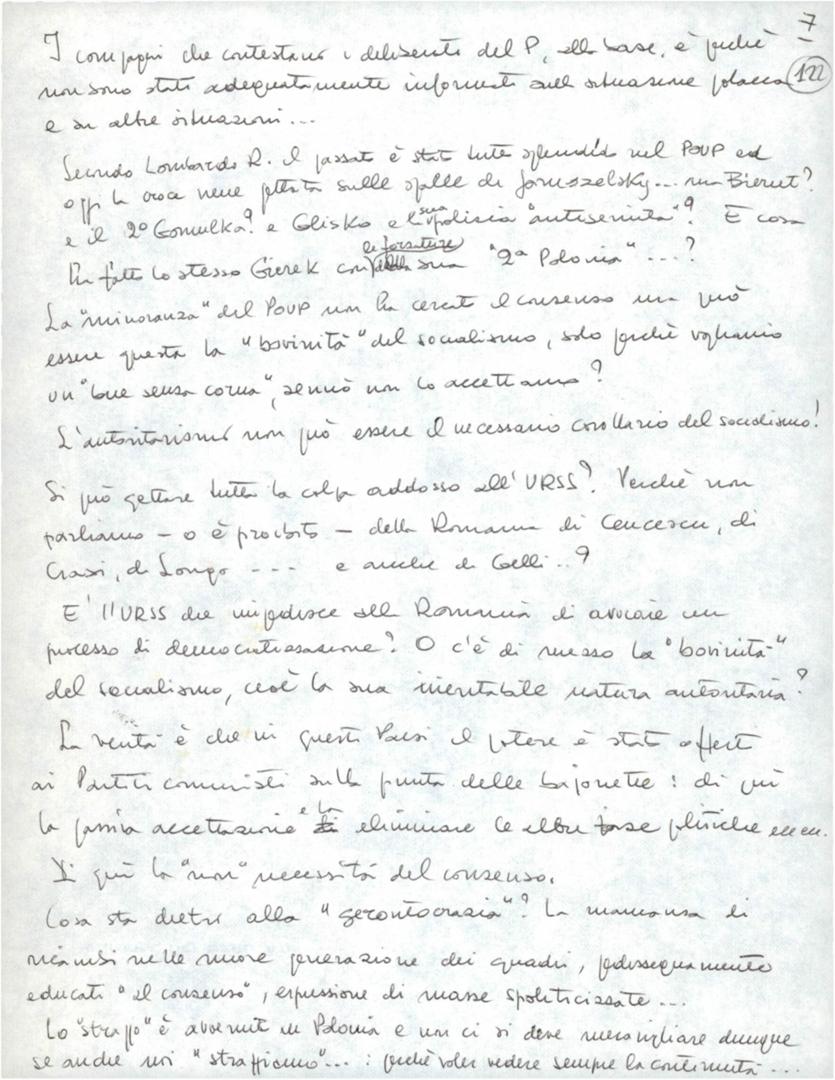 7
122
I compagni che contestano i deliberati del P. alla base, è perchè
non sono stati adeguatamente informati sulla situazione polacca
e su altre situazioni...
Secondo Lombardo R. il passato è stato tutto splendido nel POUP ed
oggi la croce viene gettata sulle spalle di Jaruszelsky... ma Bierut?
e il 2° Gomulka? e Glisko e la sua polizia "antisemita"? E cosa
ha fatto lo stesso Gierek con le forzature della sua "2ª Polonia"...?
La "minoranza" del POUP non ha cercato il consenso ma può
essere questa la "bovinità" del socialismo, solo perchè vogliamo
un "bue senza corna", sennò non lo accettiamo?
L'autoritarismo non può essere il necessario corollario del socialismo!
Si può gettare tutta la colpa addosso all'URSS? Perchè non
parliamo – o è proibito – della Romania di Ceucescu, di
Craxi, di Longo --- e anche di Gelli..?
E' l'URSS che impedisce alla Romania di avviare un
processo di democratizzazione? O c'è di mezzo la "bovinità"
del socialismo, cioè la sua inevitabile natura autoritaria?
La verità è che in questi Paesi il potere è stato offerto
ai Partiti comunisti sulla punta delle bajonette: di qui
la passiva accettazione e la di eliminare le altre forze politiche ecc ecc.
Di qui la "non" necessità del consenso.
Cosa sta dietro alla "gerontocrazia"? La mancanza di
ricambi nelle nuove generazione dei quadri, pedissequamente
educati "al consenso", espressione di masse spoliticizzate...
Lo "strappo" è avvenuto in Polonia e non ci si deve meravigliare dunque
se anche noi "strappiamo"...: perchè voler vedere sempre la continuità...